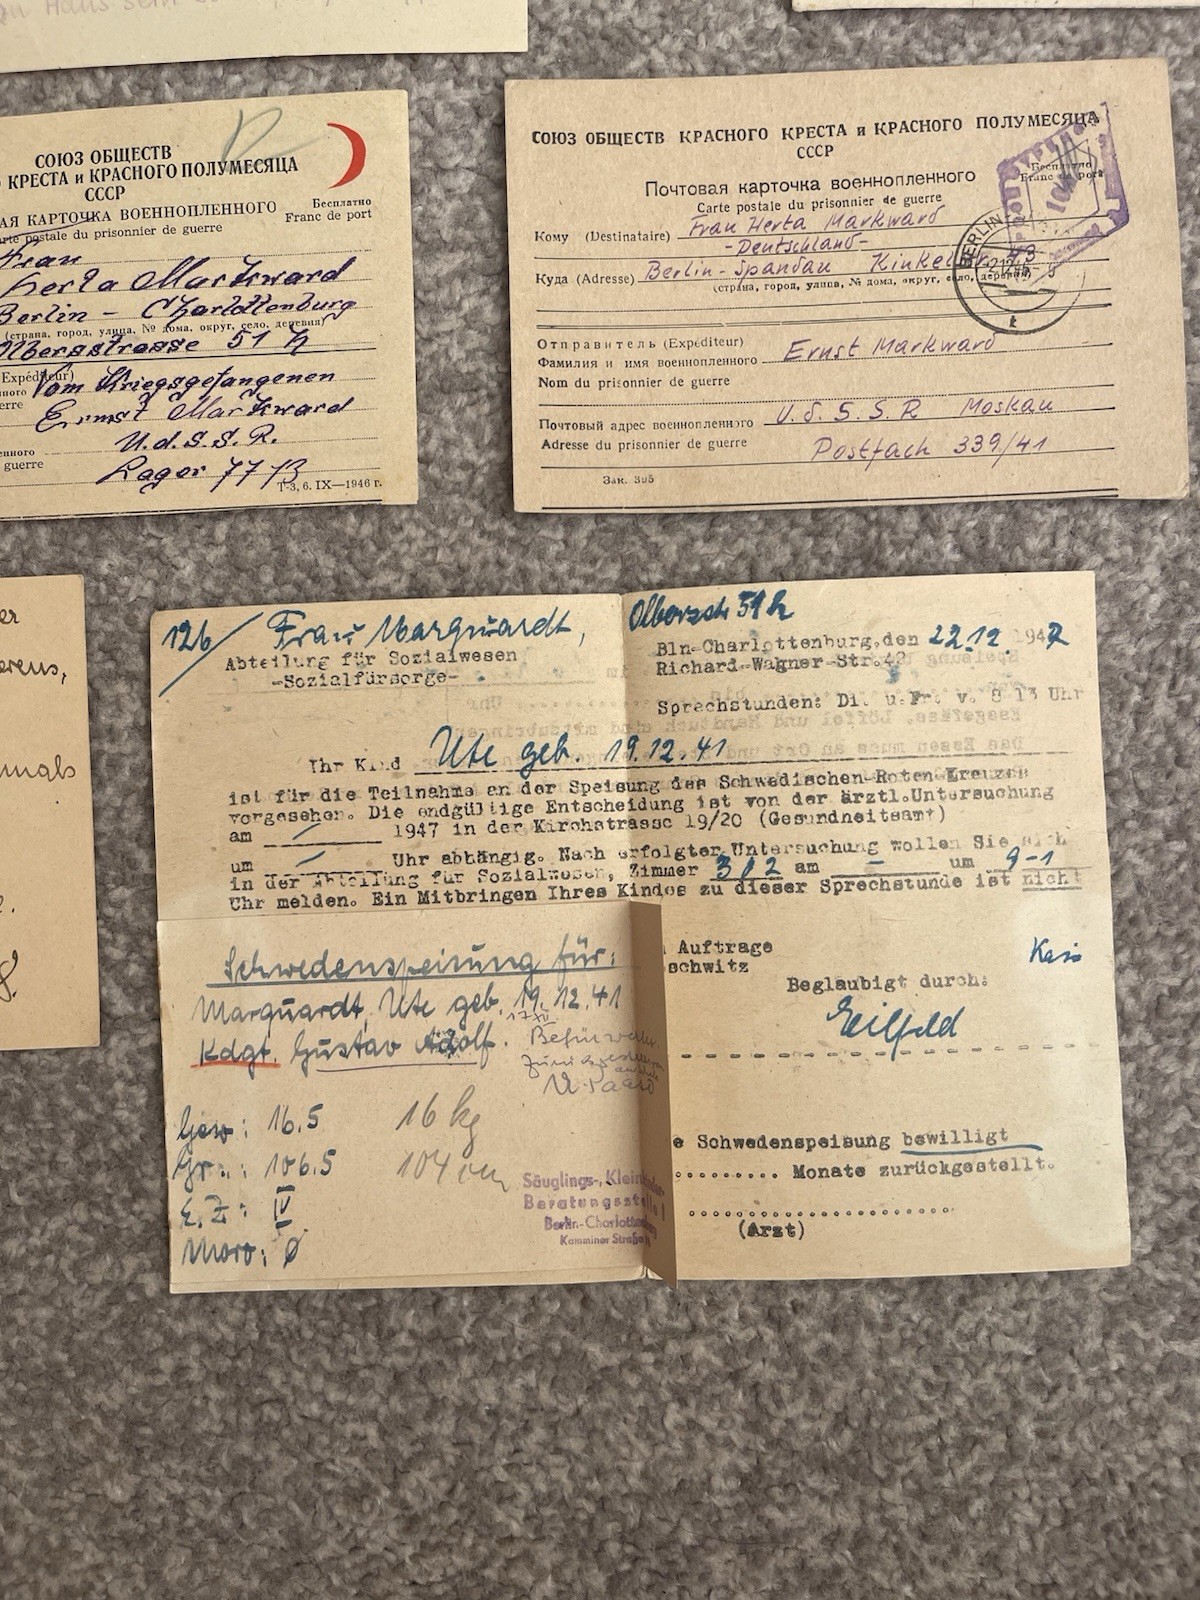 СОЮЗ ОБЩЕСТВ
КРЕСТА и КРАСНОГО ПОЛУМЕСЯЦА
СССР
КАРТОЧКА ВОЕННОПЛЕННОГО
Бесплатно
Franc de port
postale du prisonnier de guerre
Frau
Herta Markward
Berlin - Charlottenburg
(страна, город, улица, № дома, округ, село, деревня)
Olbersstrasse 51 h
Expéditeur)
Vom Kriegsgefangenen
Ernst Markward
U.d.S.S.R.
guerre
Lager 77/3
Т-3, 6. IX—1946 г.
СОЮЗ ОБЩЕСТВ КРАСНОГО КРЕСТА и КРАСНОГО ПОЛУМЕСЯЦА
СССР
Бесплатно
Franc de port
Почтовая карточка военнопленного
Carte postale du prisonnier de guerre
Кому (Destinataire) Frau Herta Markward
-Deutschland-
Куда (Adresse) Berlin-Spandau
(страна, город, улица, № дома, округ, село, деревня)
BERLIN
Отправитель (Expéditeur)
Фамилия и имя военнопленного Ernst Markward
Nom du prisonnier de guerre
Почтовый адрес военнопленного U.d.S.S.R Moskau
Adresse du prisonnier de guerre Postfach 339/41
Зак. 395
126/ Frau Marquardt, Olbersstr 51 h
Abteilung für Sozialwesen
-Sozialfürsorge-
Bln-Charlottenburg, den 22.12. 1947
Richard-Wagner-Str.42
Sprechstunden: Di. u.Fr. v. 8 13 Uhr
Ihr Kind Ute geb. 19.12.41
ist für die Teilnahme an der Speisung des Schwedischen-Roten-Kreuzes
vorgesehen. Die endgültige Entscheidung ist von der ärztl.Untersuchung
am / 1947 in der Kirchstrasse 19/20 (Gesundheitsamt)
um / Uhr abhängig. Nach erfolgter Untersuchung wollen Sie sich
in der Abteilung für Sozialwesen, Zimmer 302 am - um 9-1
Uhr melden. Ein Mitbringen Ihres Kindes zu dieser Sprechstunde ist nicht
Auftrage
schwitz
Beglaubigt durch:
Eilfeld
Schwedenspeisung für:
Marquardt, Ute geb. 19.12.41
Kdgt. Gustav Adolf.
Gew: 16.5 16 kg
Gr.: 106.5 104 cm
E.Z: IV
Moro: Ø
Säuglings-, Kleinkinder-
Beratungsstelle
Berlin-Charlottenburg
e Schwedenspeisung bewilligt
............ Monate zurückgestellt.
(Arzt)
mals